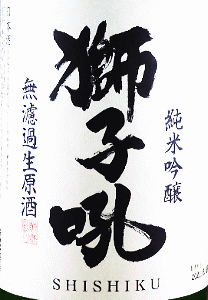 純米吟醸
獅子吼
無濾過生原酒
日本酒
SHISHIKU